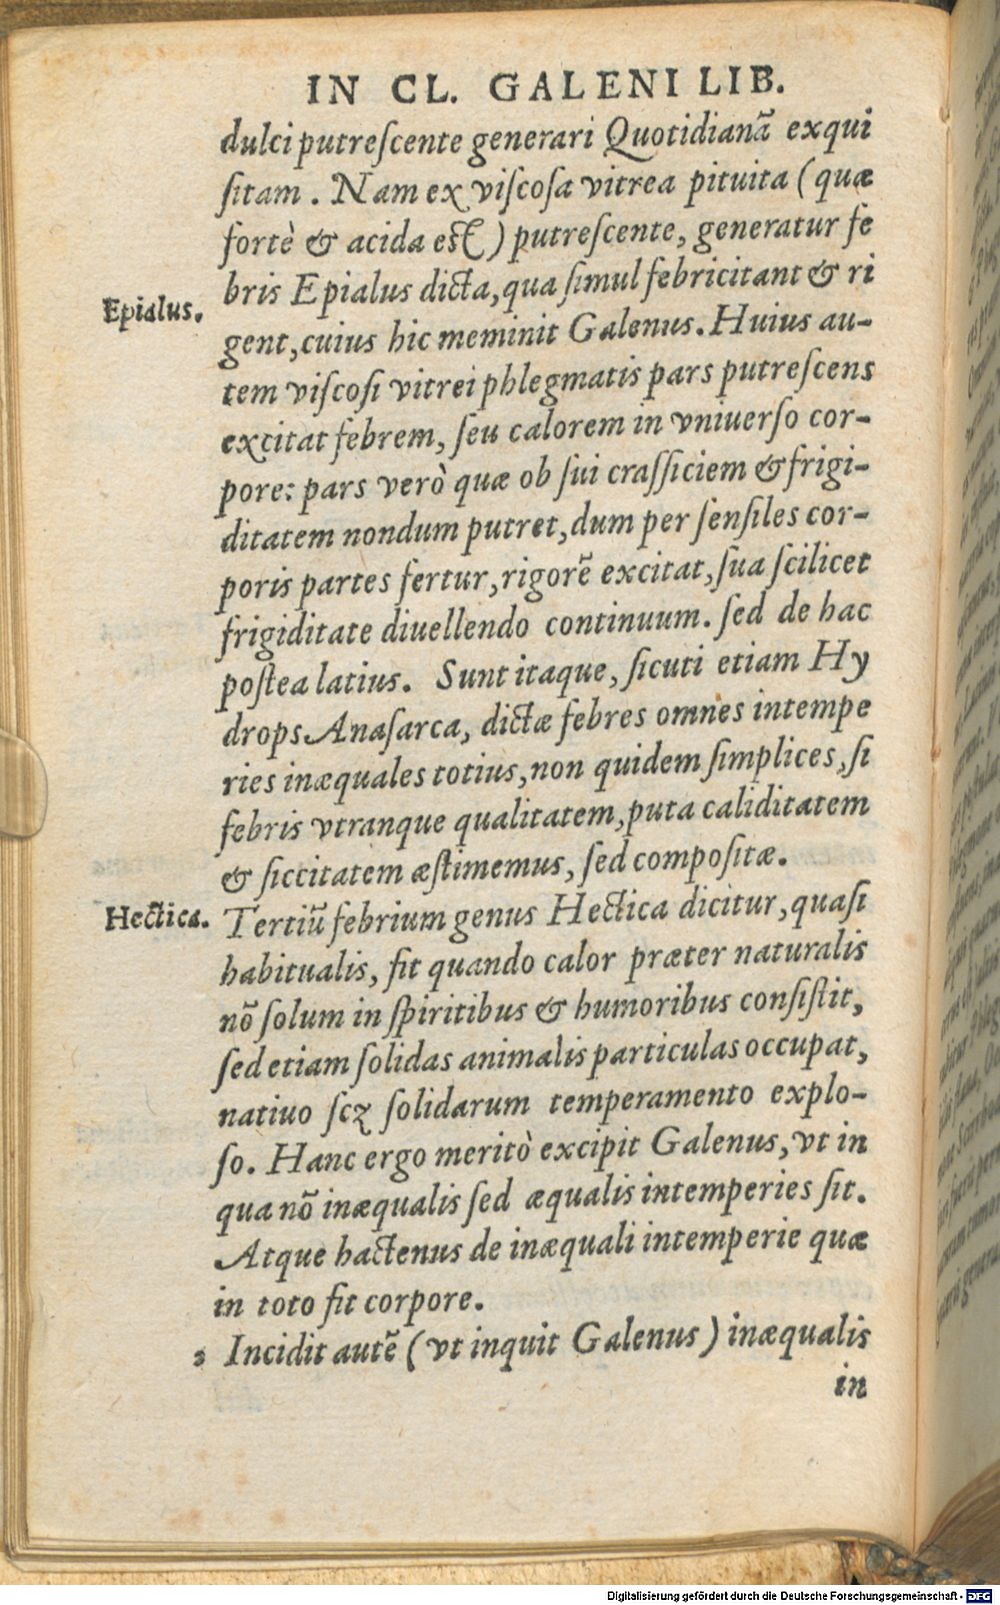 IN CL. GALENI LIB.
dulci putreſcente generari Quotidianã exqui
ſitam. Nam ex viſcoſa vitrea pituita (quæ
fortè & acida eſt) putreſcente, generatur fe
bris Epialus dicta, qua ſimul febricitant & ri
Epialus.
gent, cuius hic meminit Galenus. Huius au-
tem viſcoſi vitrei phlegmatis pars putreſcens
excitat febrem, ſeu calorem in vniuerſo cor-
pore: pars verò quæ ob ſui craſſiciem & frigi-
ditatem nondum putret, dum per ſenſiles cor-
poris partes fertur, rigorẽ excitat, ſua ſcilicet
frigiditate diuellendo continuum. ſed de hac
poſtea latius. Sunt itaque, ſicuti etiam Hy
drops Anaſarca, dictæ febres omnes intempe
ries inæquales totius, non quidem ſimplices, ſi
febris vtranque qualitatem, puta caliditatem
& ſiccitatem æſtimemus, ſed compoſitæ.
Hectica.
Tertiũ febrium genus Hectica dicitur, quaſi
habitualis, fit quando calor præter naturalis
nõ ſolum in ſpiritibus & humoribus conſiſtit,
ſed etiam ſolidas animalis particulas occupat,
natiuo ſcꝫ ſolidarum temperamento explo-
ſo. Hanc ergo meritò excipit Galenus, vt in
qua nõ inæqualis ſed æqualis intemperies ſit.
Atque hactenus de inæquali intemperie quæ
in toto fit corpore.
Incidit autẽ (vt inquit Galenus) inæqualis
in
Digitalisierung gefördert durch die Deutsche Forschungsgemeinschaft - DFG